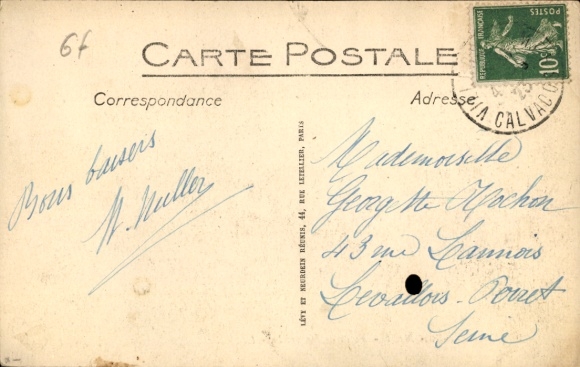 6f
CARTE POSTALE
Correspondance
Adresse
REPUBLIQUE FRANÇAISE
POSTES
10c
CALVADOS
Bons baisers
Mademoiselle
Georgette Rochon
43 rue Lannois
Levallois-Perret
Seine
LÉVY ET NEURDEIN RÉUNIS, 44, RUE LETELLIER, PARIS